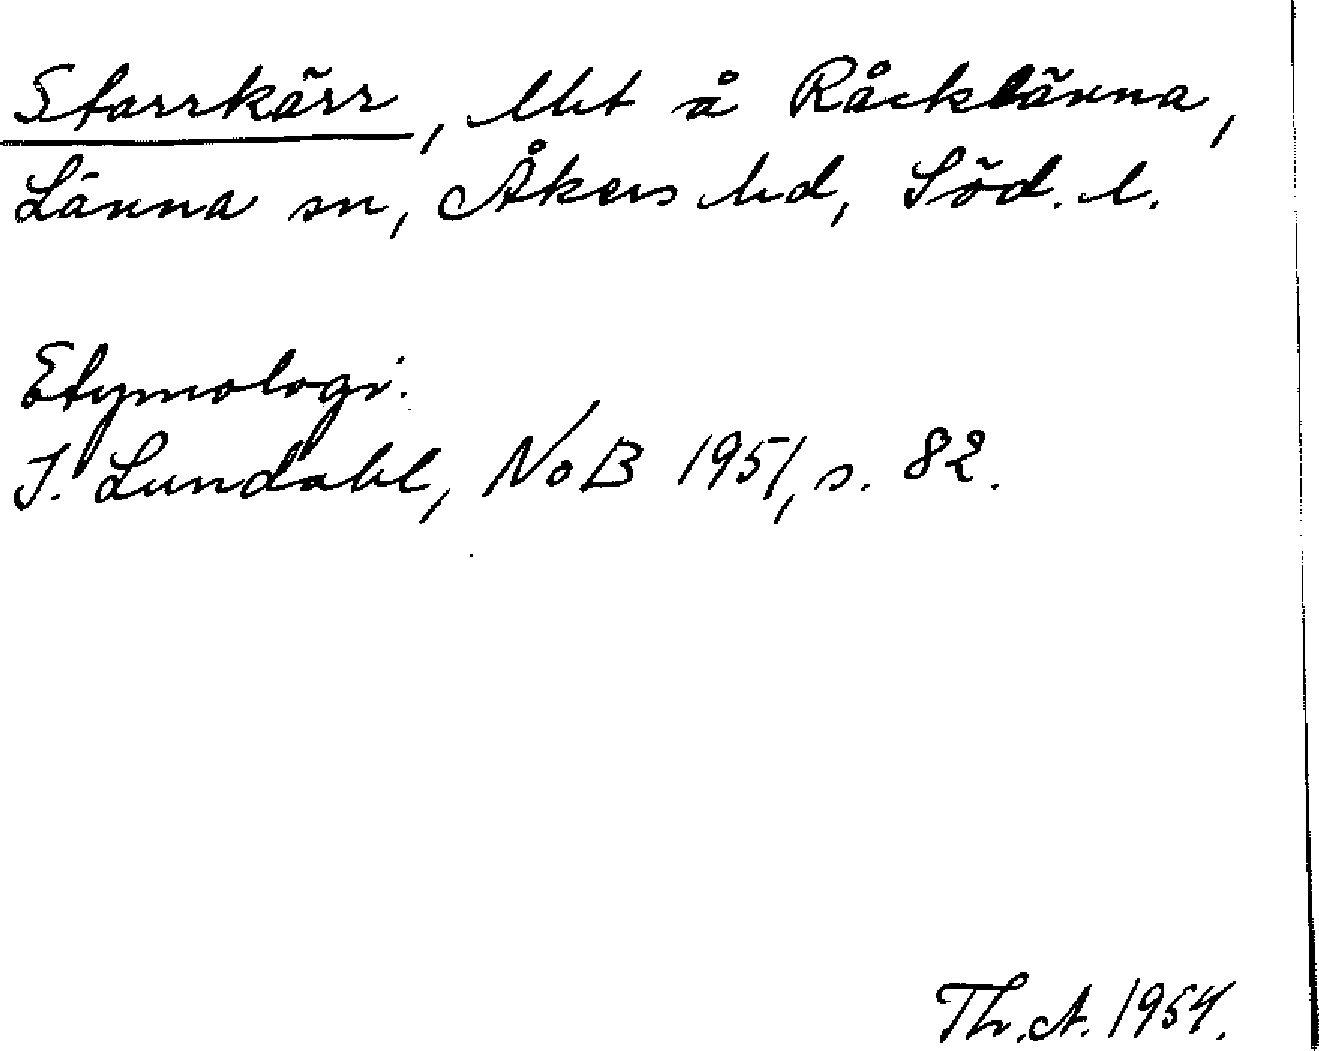 Starrkärr, lht å Råcklänna,
Länna sn, Åkers hd, Söd. l.
Etymologi:
I. Lundahl, NoB 1951, s. 82.
Th. A. 1954.